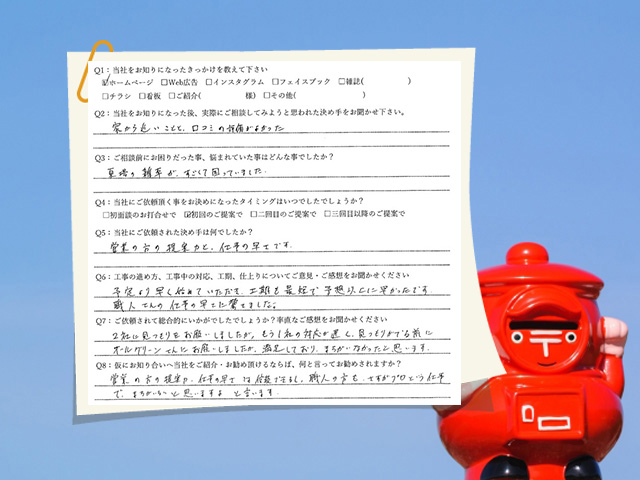 Q1：当社をお知りになったきっかけを教えて下さい
☑ホームページ　□Web広告　□インスタグラム　□フェイスブック　□雑誌(　　　)
□チラシ　□看板　□ご紹介(　　　様)　□その他(　　　)
Q2：当社をお知りになった後、実際にご相談してみようと思われた決め手をお聞かせ下さい。
家から近いことと、口コミの評価がよかった
Q3：ご相談前にお困りだった事、悩まれていた事はどんな事でしたか？
夏場の雑草が、すごくて困っていました。
Q4：当社にご依頼頂く事をお決めになったタイミングはいつでしたでしょうか？
□初面談のお打合せで　☑初回のご提案で　□二回目のご提案で　□三回目以降のご提案で
Q5：当社にご依頼された決め手は何でしたか？
営業の方の提案力と、仕事の早さです。
Q6：工事の進め方、工事中の対応、工期、仕上りについてご意見・ご感想をお聞かせください
予定より早く始めていただき、工期も最短で予想以上に早かったです。
職人さんの仕事の早さに驚きました。
Q7：ご依頼されて総合的にいかがでしたでしょうか？率直なご感想をお聞かせください
2社に見つもりをお願いしましたが、もう1社の対応が遅く、見つもりがでる前に
オールグリーンさんにお願いしましたが、満足しており、まちがいなかったと思います。
Q8：仮にお知り合いへ当社をご紹介・お勧め頂けるならば、何と言ってお勧めされますか？
営業の方の提案力、仕事の早さは信頼できるし、職人の方も、さすがプロという仕事
で、まちがいないと思いますよ　と言います。